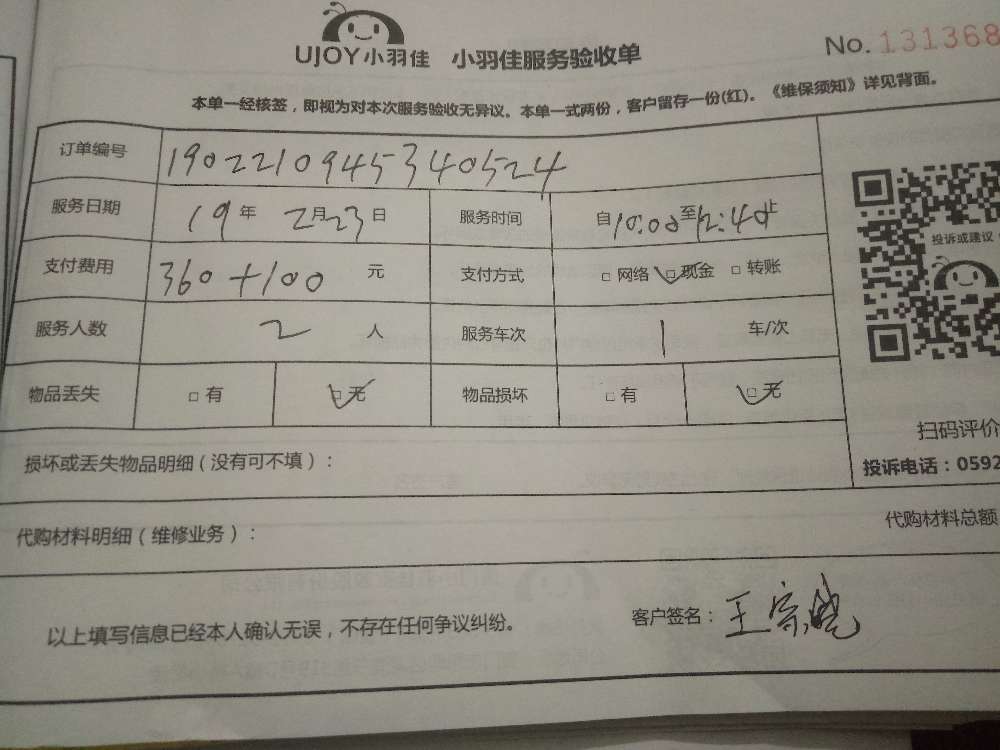 UJOY小羽佳 小羽佳服务验收单 No.131368
本单一经核签，即视为对本次服务验收无异议。本单一式两份，客户留存一份(红)。《维保须知》详见背面。
订单编号 190221094534 0524
服务日期 19年 2月23日 服务时间 自10:00至12:40止
支付费用 360+100 元 支付方式 □网络 □现金 □转账
服务人数 2 人 服务车次 1 车/次
物品丢失 □有 □无 物品损坏 □有 □无
投诉或建议
扫码评价
投诉电话：0592
损坏或丢失物品明细（没有可不填）：
代购材料明细（维修业务）： 代购材料总额
以上填写信息已经本人确认无误，不存在任何争议纠纷。 客户签名：王